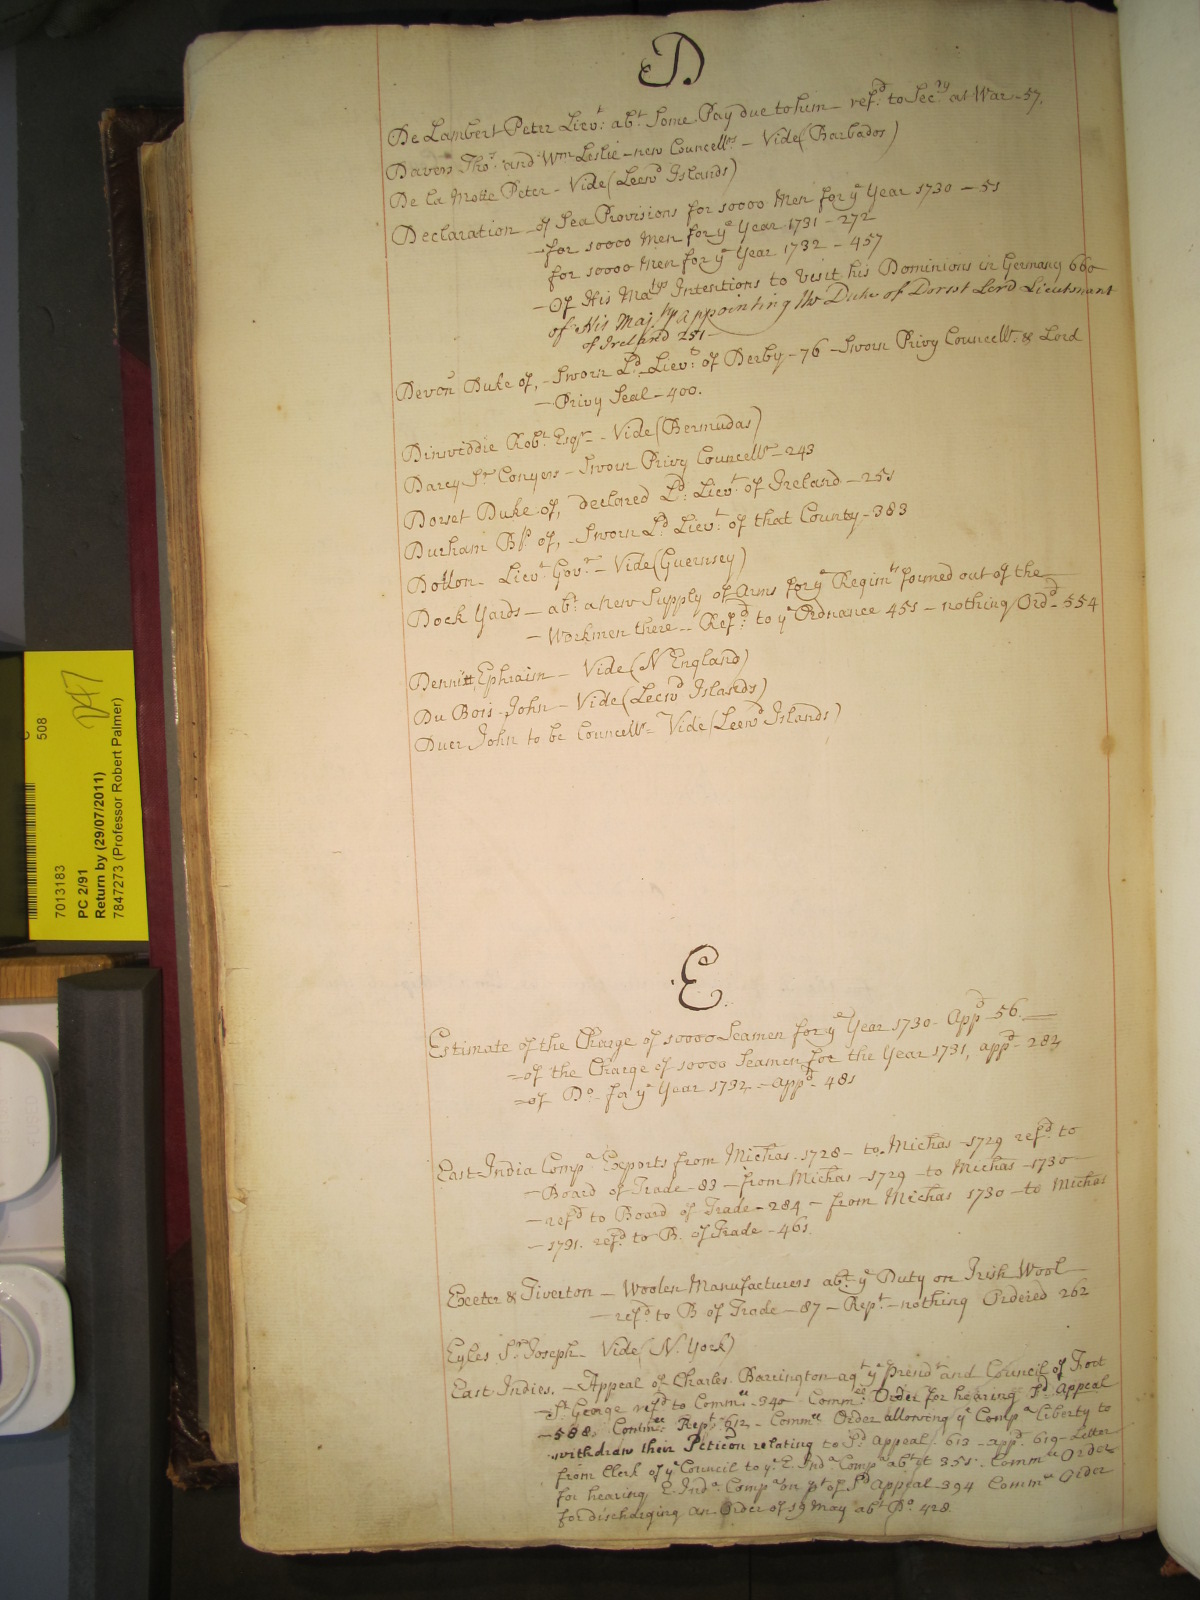 D
De Lambert Peter Lievt. abt. Some Pay due to him - refd. to Secry. at War - 57.
Davers Thos. and Wm Leslie - new Councellrs - Vide (Barbados)
De la Motte Peter - Vide (Leewd Islands)
Declaration - of Sea Provisions for 10000 Men for ye Year 1730 - 51
- for 10000 Men for ye Year 1731 - 272
for 10000 Men for ye Year 1732 - 457
- Of His Matys Intentions to Visit his Dominions in Germany 660
of His Majtys appointing the Duke of Dorset Lord Lieutenant
of Ireland 251 -
Devon Duke of, - Sworn Ld. Lievt. of Derby - 76 - Sworn Privy Councellr. & Lord
- Privy Seal - 400.
Dinwiddie Robt. Esqr - Vide (Bermudas)
Darcy Sr Conyers - Sworn Privy Councellr - 243
Dorset Duke of, declared Ld. Lievt. of Ireland - 251
Durham Bp. of, - Sworn Ld. Lievt. of that County - 383
Dollon - Lievt. Govr. - Vide (Guernsey)
Dock Yards - abt. a new Supply of Arms for ye Regimts formed out of the
- Workmen there - Refd. to ye Ordnance 451 - nothing Ordd. - 554
Dennitt Ephraim - Vide (N England)
Du Bois John - Vide (Leewd Islands)
Duer John to be Councellr - Vide (Leewd Islands)
E
Estimate of the Charge of 10000 Seamen for ye Year 1730 - Appd - 56.
- of the Charge of 10000 Seamen for the Year 1731, appd - 284
- of Do - for ye Year 1732 - appd - 481
East-India Compa Exports from Michas - 1728 - to Michas - 1729 refd. to
- Board of Trade - 83 - from Michas - 1729 - to Michas - 1730 -
- refd to Board of Trade - 284 - from Michas 1730 - to Michas
- 1731. refd. to B. of Trade - 461.
Exeter & Tiverton - Woolen Manufacturers abt. ye Duty on Irish Wool
- refd to B of Trade - 87 - Rept. - nothing Ordered 262
Eyles Sr Joseph - Vide (N. York)
East Indies. - Appeal of Charles Barrington agt ye Presidt and Council of Fort
- St. George refd to Commee - 340 - Commee Order for hearing Sd Appeal
- 588. Rept. 612 - Commee Order allowing ye Compa Liberty to
- withdraw their Peticon relating to Sd Appeal. 613 - appd. 619 - Letter
from Clerk of ye Council to ye E. Inda Compa abt it 351. Commee Order
for hearing E. Inda. Compa on pt of Sd Appeal 394 Commee Order
for discharging an Order of 19 May abt Do. 428.
7013183
PC 2/91
Return by (29/07/2011)
7847273 (Professor Robert Palmer)
508
247